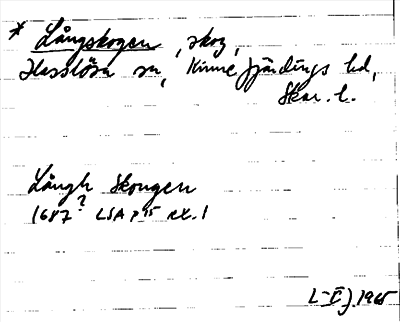 * Långskogen, skog,
Hasslösa sn, Kinnefjärdings hd,
Skar. l.
Långh Skougen
1687? LSA P 15 ak. 1
1965